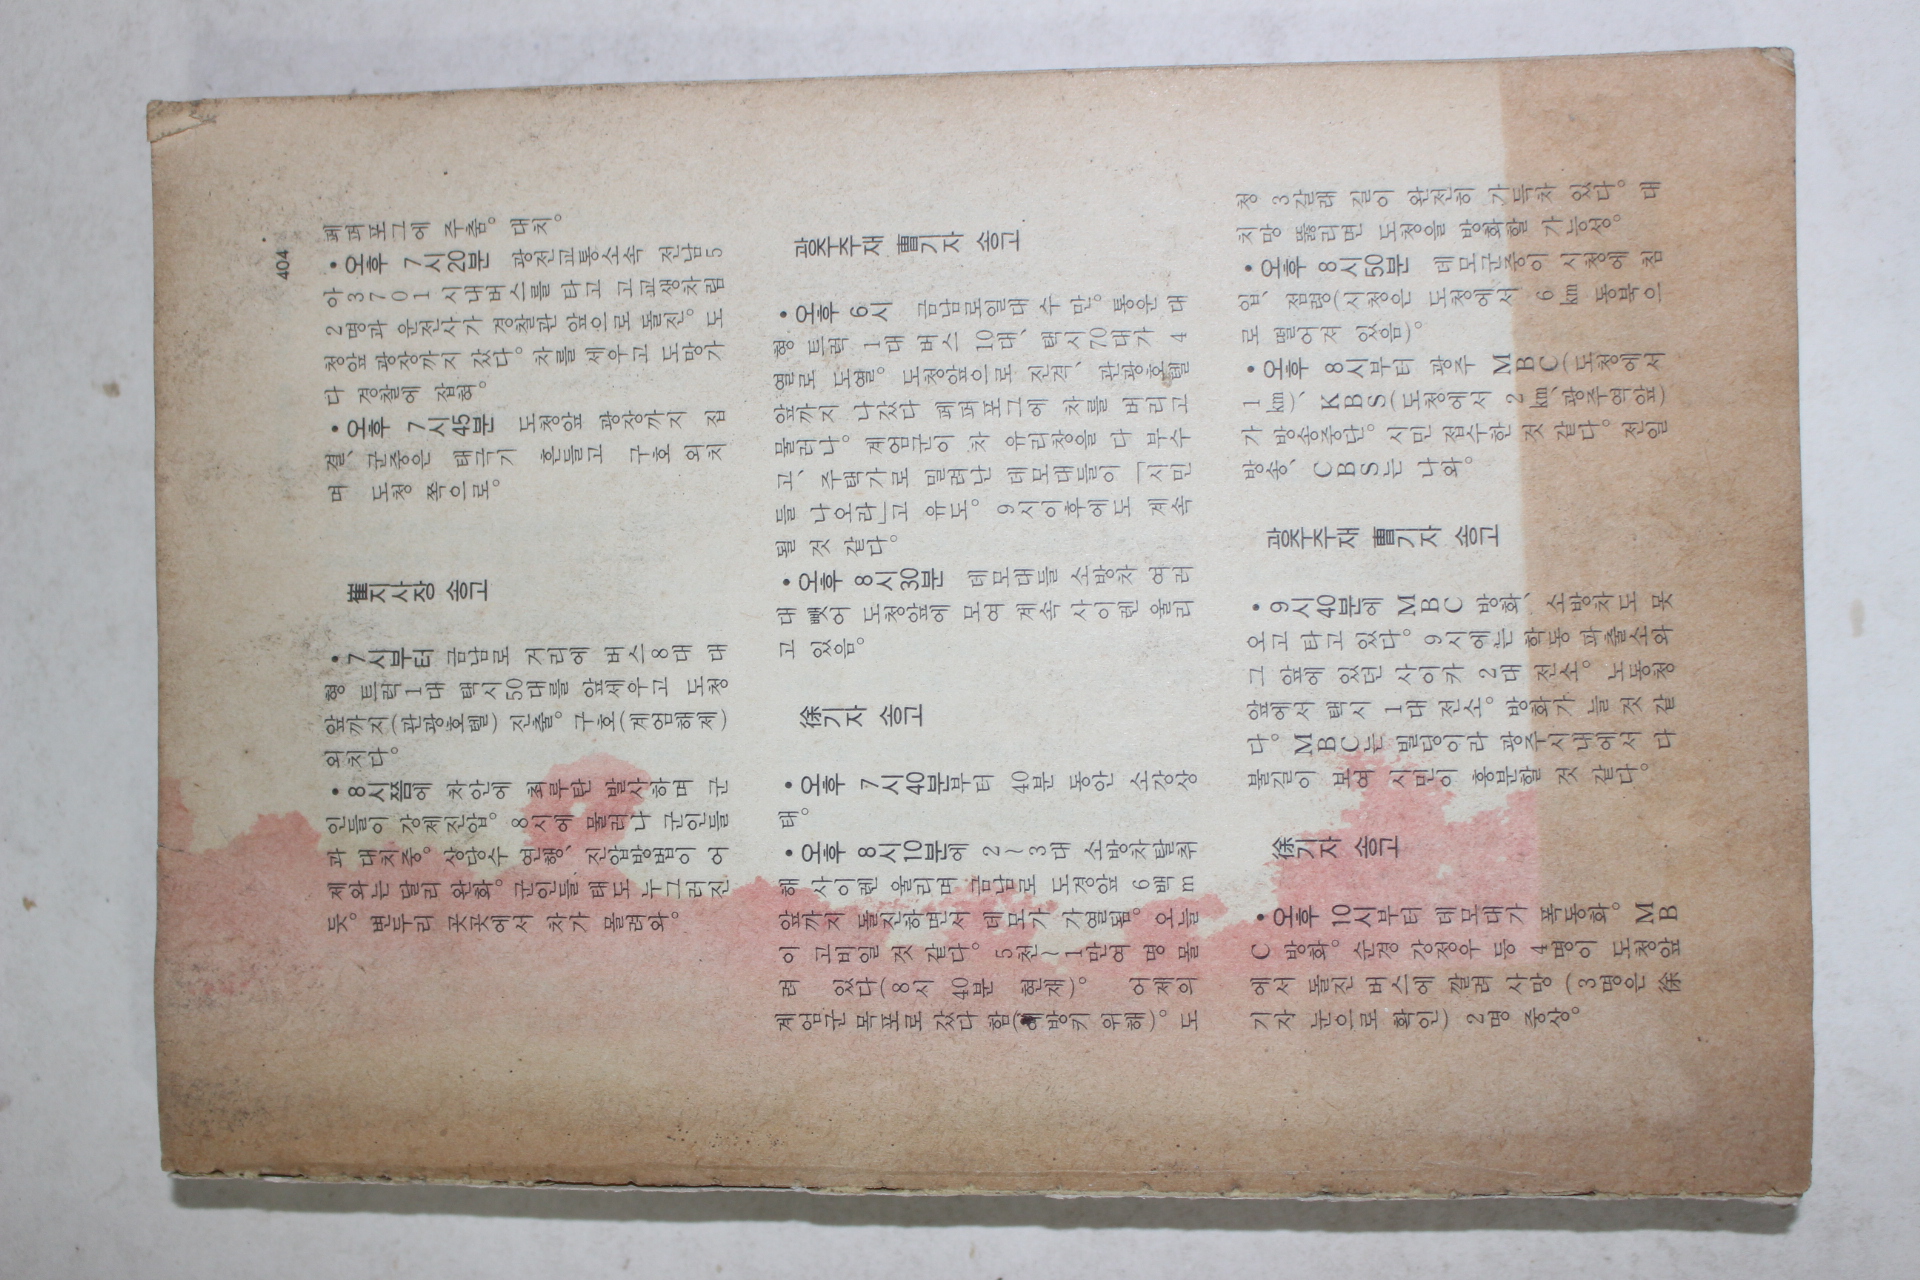 404
페퍼포그에 주춤。대치。
•오후 7시20분 광전교통소속 전남5
아3701 시내버스를 타고 고교생차림
2명과 운전사가 경찰관 앞으로 돌진。도
청앞 광장까지 갔다。차를 세우고 도망가
다 경찰에 잡혀。
•오후 7시45분 도청앞 광장까지 집
결、군중은 태극기 흔들고 구호 외치
며 도청 쪽으로。
崔지사장 송고
•7시부터 금남로 거리에 버스8대 대
형 트럭1대 택시50대를 앞세우고 도청
앞까지(관광호텔) 진출。구호(계엄해제)
외치다。
•8시쯤에 차안에 최루탄 발사하며 군
인들이 강제진압。8시에 물러나 군인들
과 대치중。상당수 연행、진압방법이 어
제와는 달리 완화。군인들 태도 누그러진
듯。변두리 곳곳에서 차가 몰려와。
광주주재 曺기자 송고
•오후 6시 금남로일대 수만。통운 대
형 트럭 1대 버스 10대、택시70대가 4
열로 도열。도청앞으로 진격、관광호텔
앞까지 나갔다 페퍼포그에 차를 버리고
물러나。계엄군이 차 유리창을 다 부수
고、주택가로 밀려난 데모대들이 「시민
들 나오라」고 유도。9시이후에도 계속
될 것 같다。
•오후 8시30분 데모대들 소방차 여러
대 뺏어 도청앞에 모여 계속 사이렌 울리
고 있음。
徐기자 송고
•오후 7시40분부터 40분 동안 소강상
태。
•오후 8시10분에 2~3대 소방차탈취
해 사이렌 울리며 금남로 도청앞 6백m
앞까지 돌진하면서 데모가 가열됨。오늘
이 고비일 것 같다。5천~1만여 명 몰
려 있다(8시 40분 현재)。어제의
계엄군 목포로 갔다 함(해방키 위해)。도
청 3갈래 길이 완전히 가득차 있다。대
치망 뚫리면 도청을 방화할 가능성。
•오후 8시50분 데모군중이 시청에 침
입、점령(시청은 도청에서 6㎞ 동북으
로 떨어져 있음)。
•오후 8시부터 광주 MBC(도청에서
1㎞)、KBS(도청에서 2㎞、광주역앞)
가 방송중단。시민 접수한 것 같다。전일
방송、CBS는 나와。
광주주재 曺기자 송고
•9시40분에 MBC 방화、소방차도 못
오고 타고 있다。9시에는 학동 파출소와
그 앞에 있던 사이카 2대 전소。노동청
앞에서 택시 1대 전소。방화가 늘 것 같
다。MBC는 빌딩이라 광주시내에서 다
불길이 보여 시민이 흥분할 것 같다。
徐기자 송고
•오후 10시부터 데모대가 폭동화。MB
C 방화。순경 강정우 등 4명이 도청앞
에서 돌진 버스에 깔려 사망(3명은 徐
기자 눈으로 확인) 2명 중상。